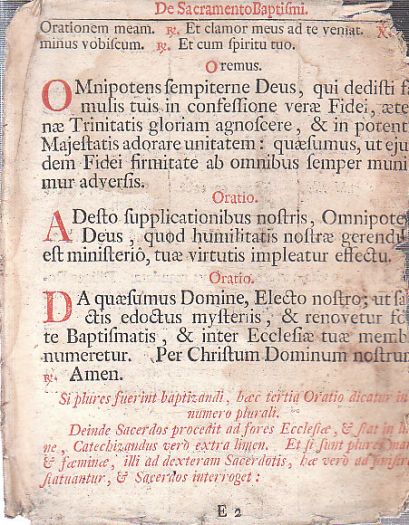 De Sacramento Baptismi.
Orationem meam. ℟. Et clamor meus ad te veniat. ℣.
minus vobiscum. ℟. Et cum spiritu tuo.
Oremus.
OMnipotens sempiterne Deus, qui dedisti fa
mulis tuis in confessione veræ Fidei, æte
næ Trinitatis gloriam agnoscere, & in potent
Majestatis adorare unitatem: quæsumus, ut eju
dem Fidei firmitate ab omnibus semper muni
mur adversis.
Oratio.
ADesto supplicationibus nostris, Omnipote
Deus, quod humilitatis nostræ gerend
est ministerio, tuæ virtutis impleatur effectu.
Oratio.
DA quæsumus Domine, Electo nostro; ut sa
ctis edoctus mysteriis, & renovetur fo
te Baptismatis, & inter Ecclesiæ tuæ memb
numeretur. Per Christum Dominum nostrum
℟. Amen.
Si plures fuerint baptizandi, hæc tertia Oratio dicatur in
numero plurali.
Deinde Sacerdos procedit ad fores Ecclesiæ, & stat in li
ne, Catechizandus verò extra limen. Et si sint plures ma
& fœminæ, illi ad dexteram Sacerdotis, hæ verò ad sinistr
statuantur, & Sacerdos interroget:
E 2